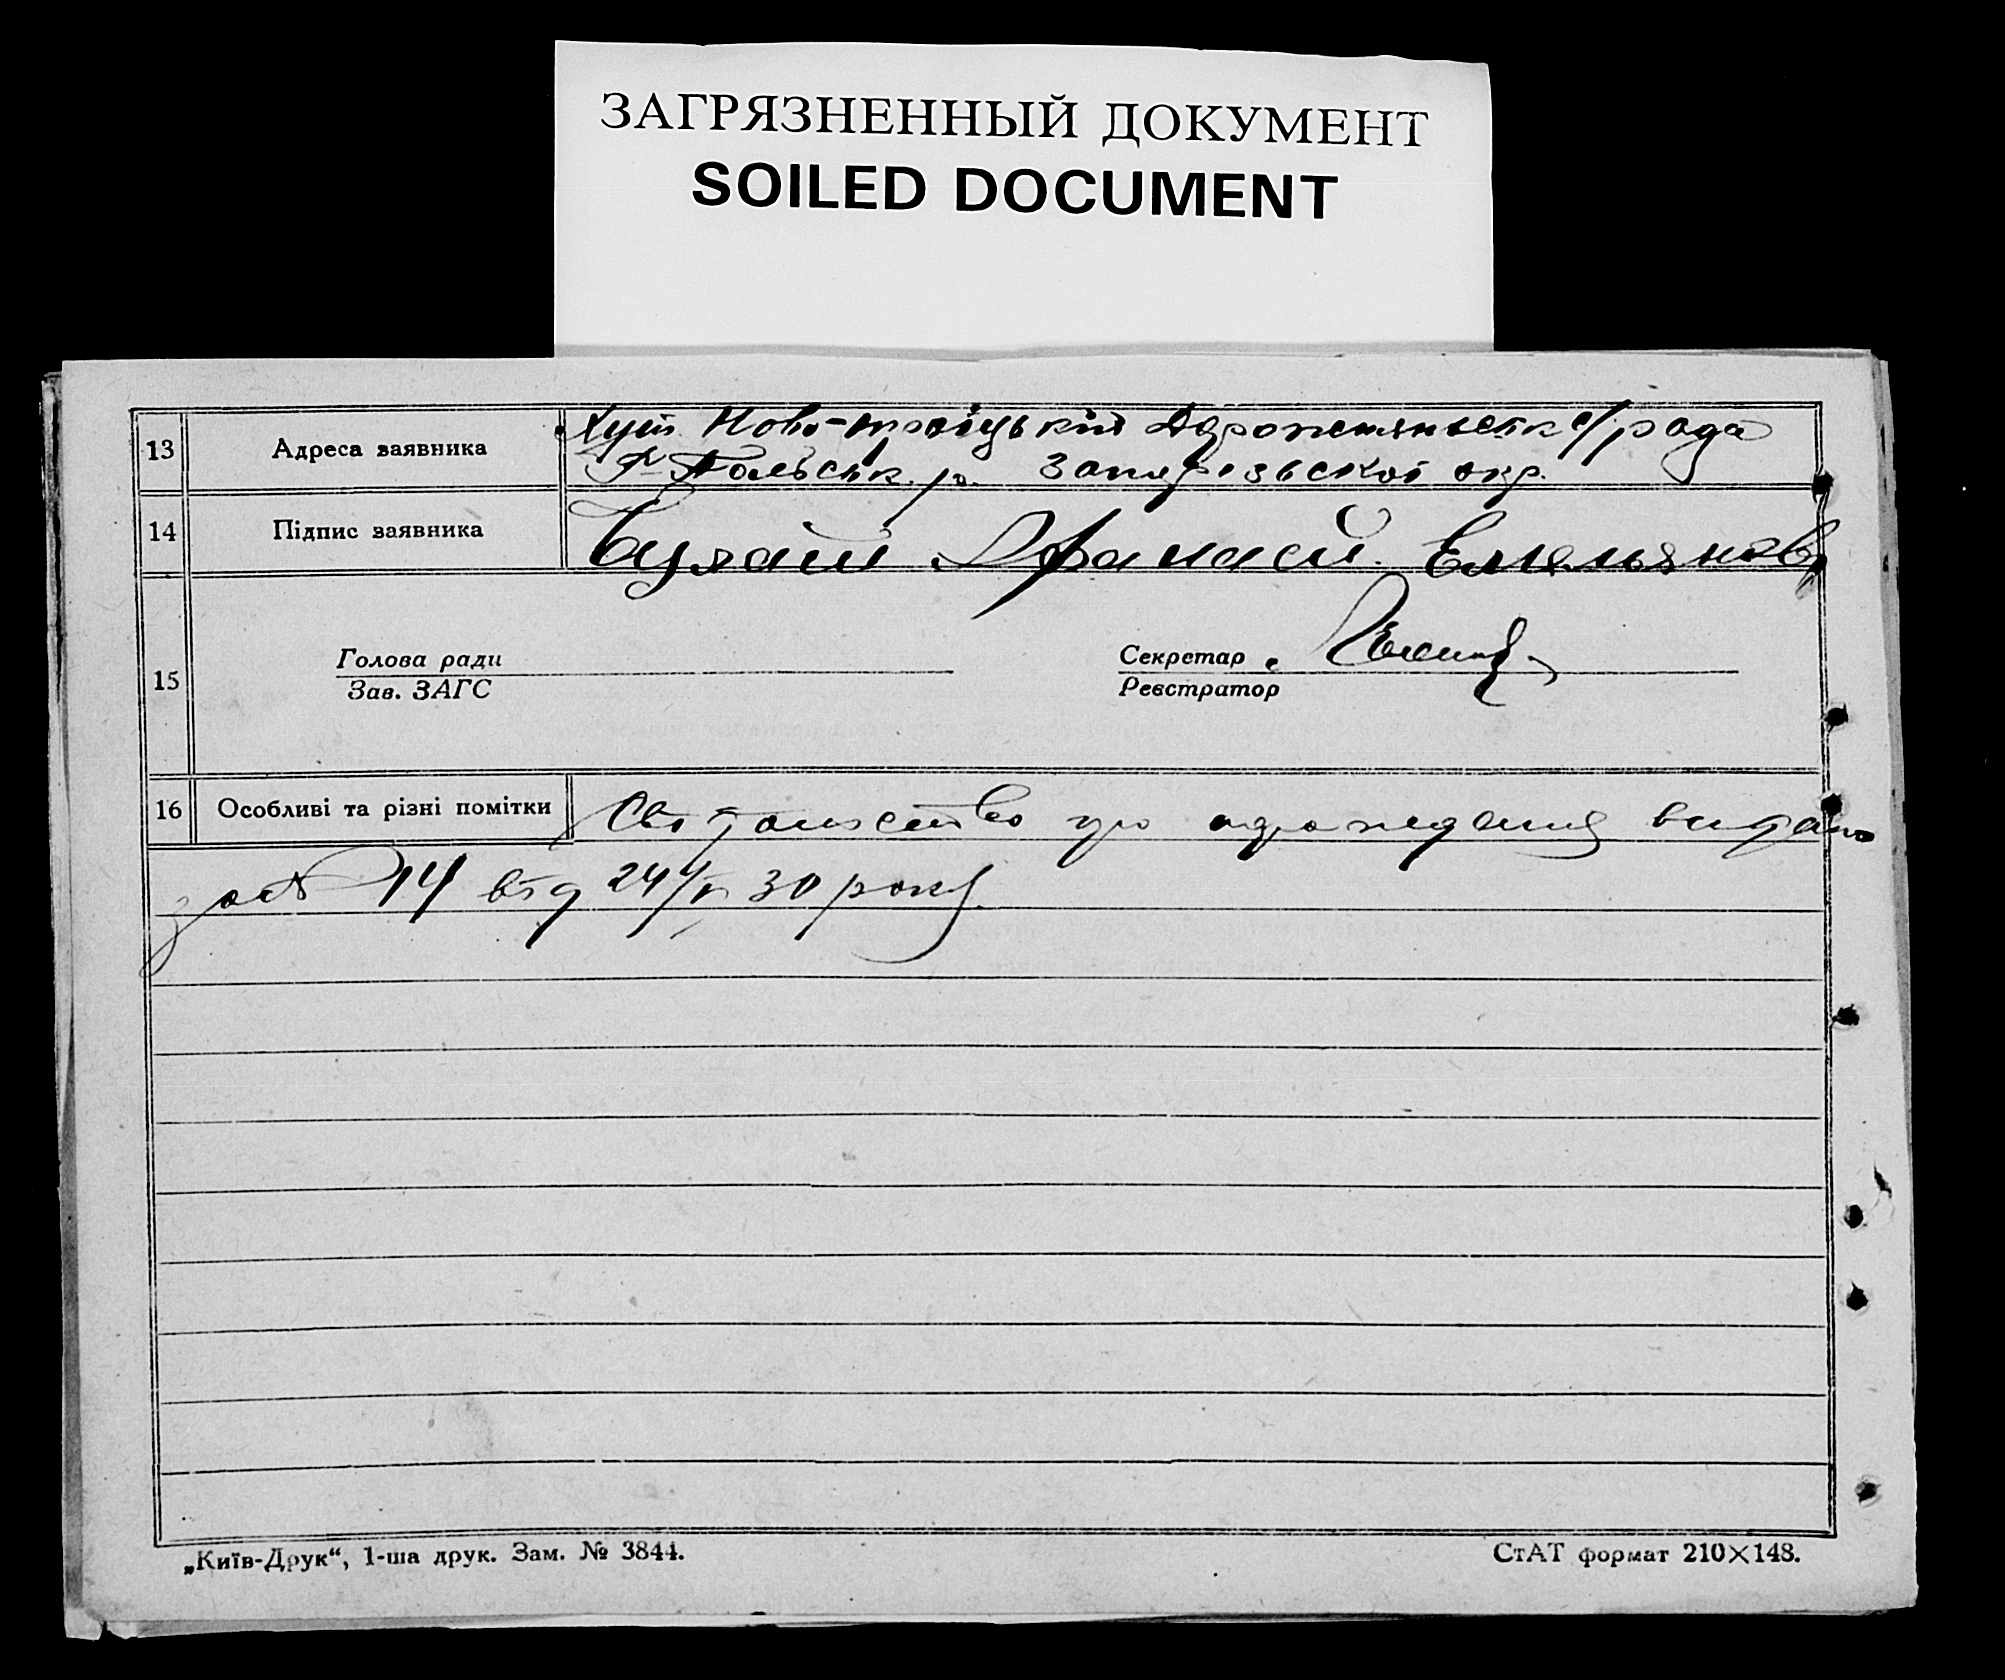 ЗАГРЯЗНЕННЫЙ ДОКУМЕНТ
SOILED DOCUMENT
13 Адреса заявника Хут. Ново-троіцький с/рада
р. Запорізьскої окр.
14 Підпис заявника Афанасий Емельянов
15 Голова ради Секретар
Зав. ЗАГС Реєстратор
16 Особливі та різні помітки про видано
за № 14 від 30 року
„Київ-Друк“, 1-ша друк. Зам. № 3844. СтАТ формат 210×148.